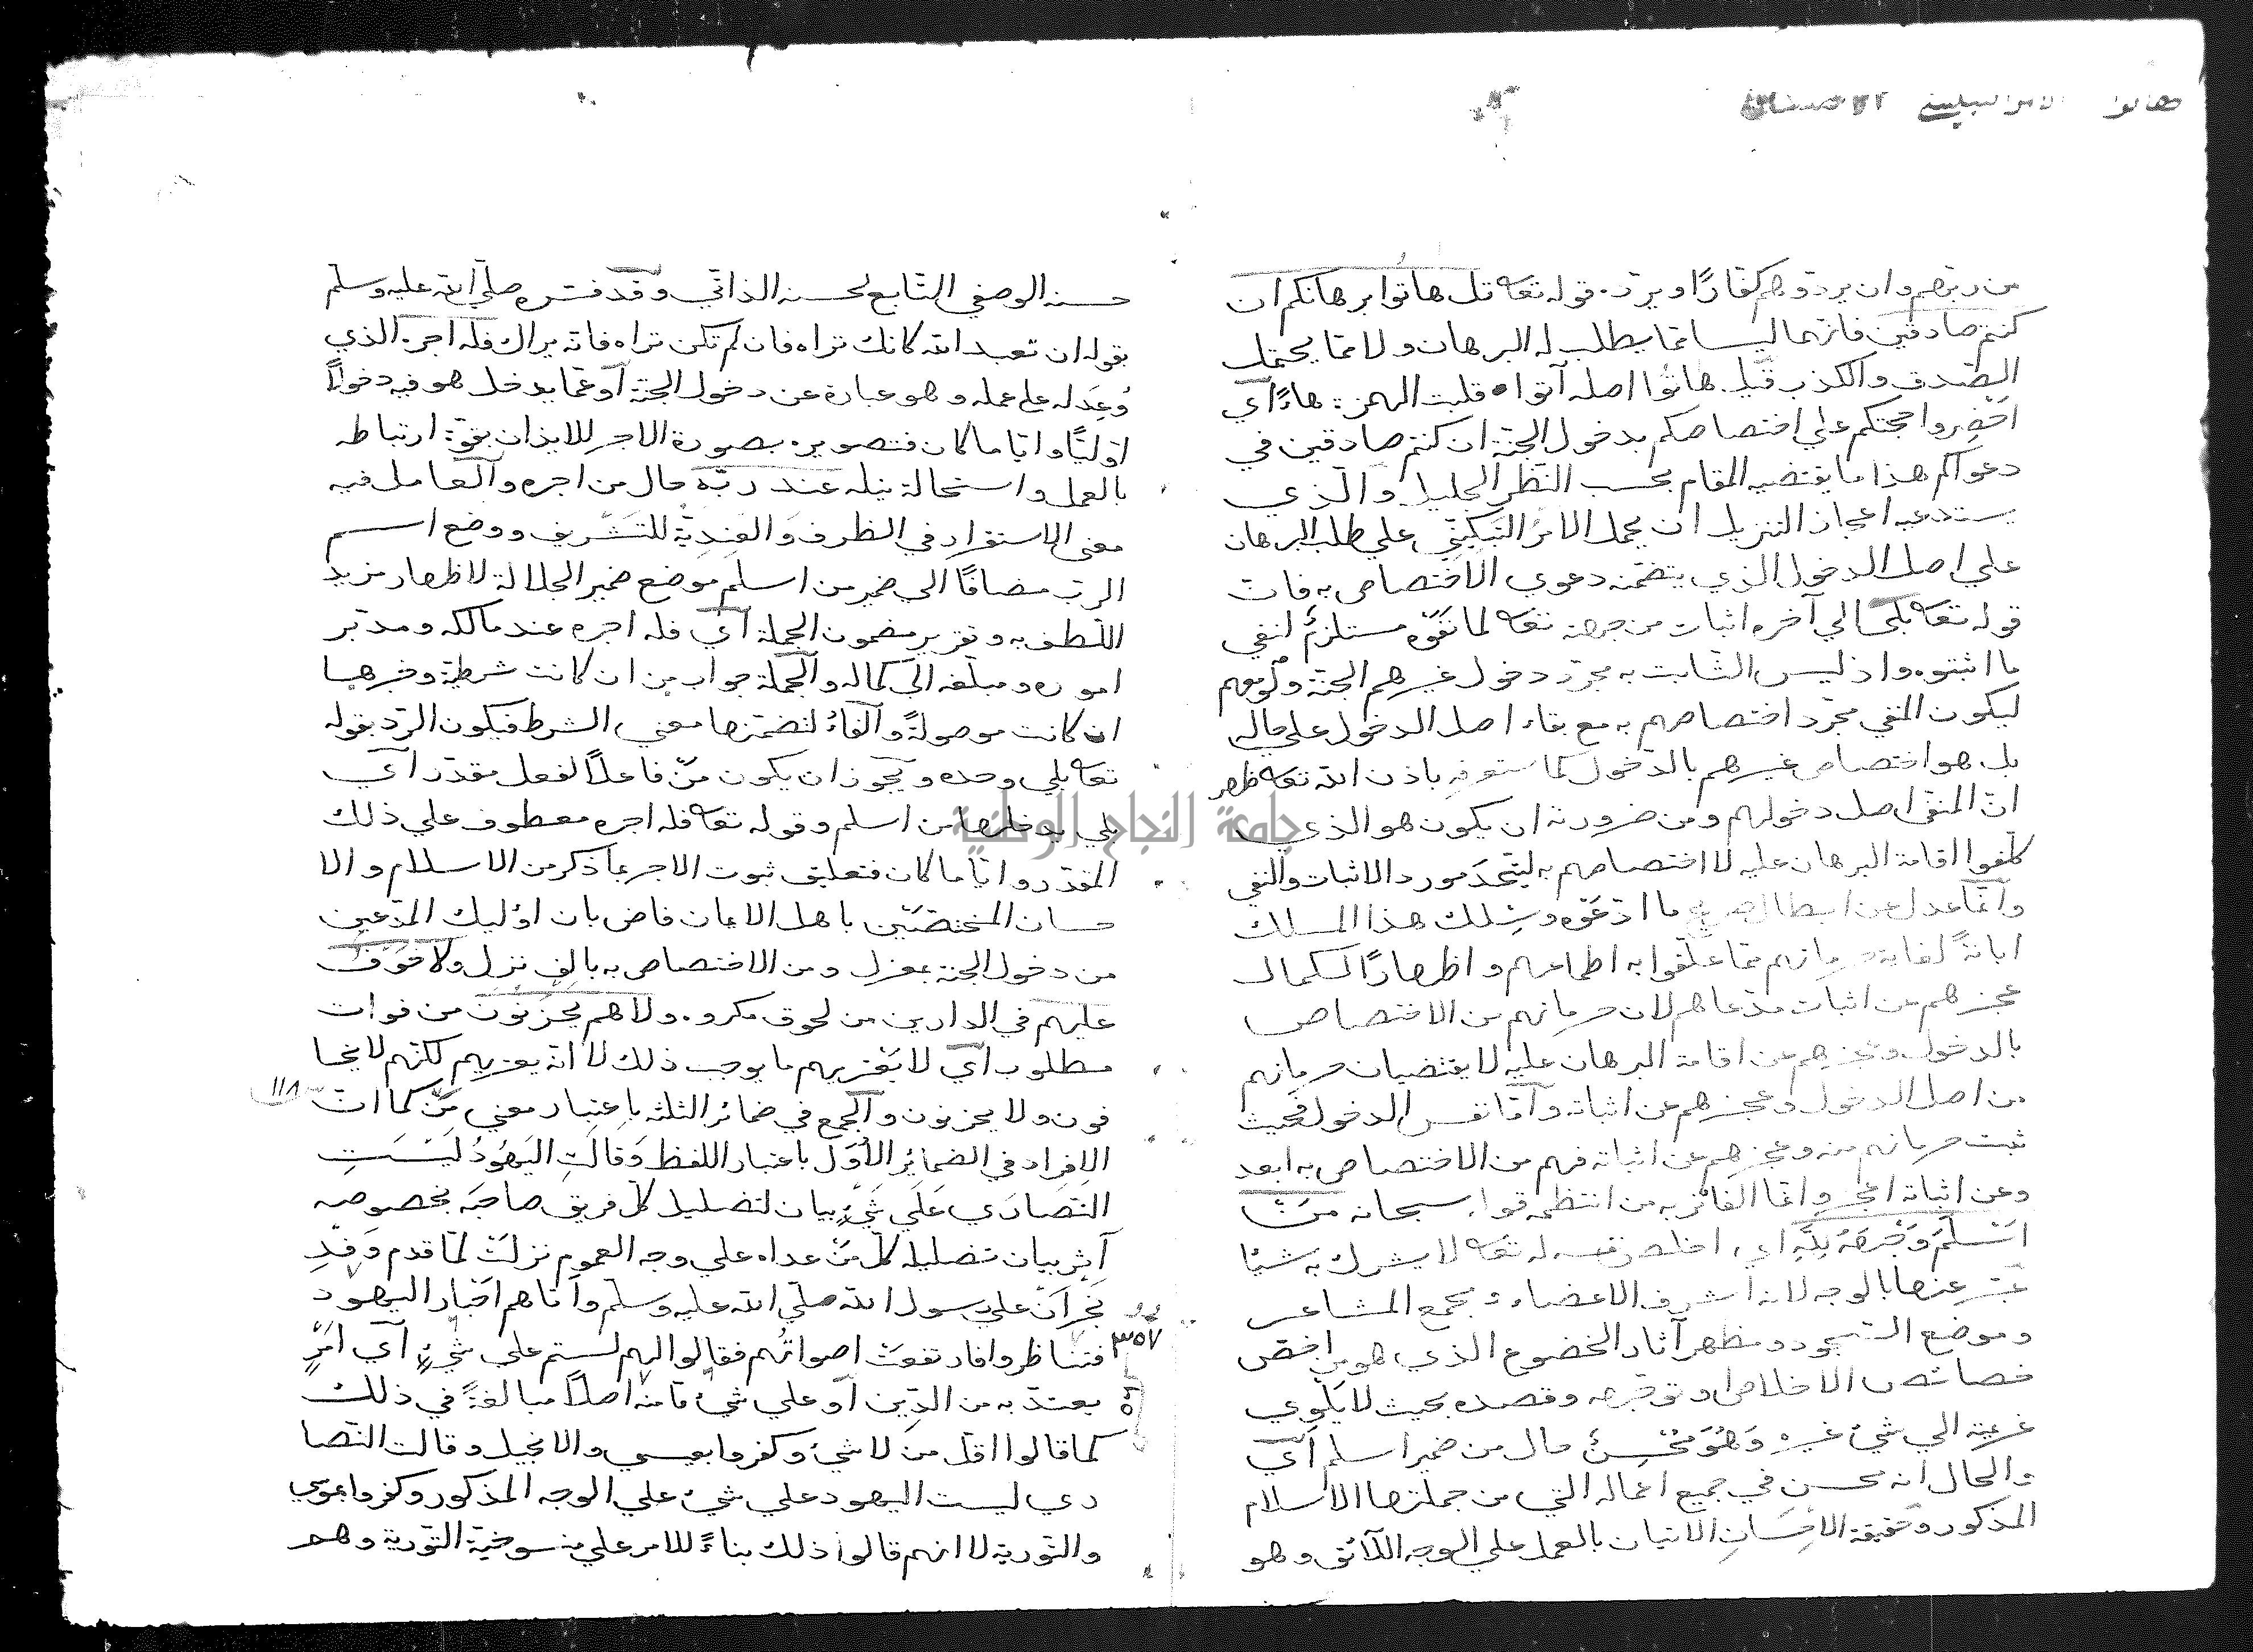 هاتوا الامر التبكيتي الاختصاص
من دينهم وان يردوهم كفارًا ويرد. قوله تعه قل هاتوا برهانكم ان
كنتم صادقين فانهما ليسا مما يطلب له البرهان ولا مما يحتمل
الصّدق والكذب قيل هاتوا اصله آتوا قلبت الهمزة هاءً اي
احضِروا حجتكم علي اختصاصكم بدخول الجنّة ان كنتم صادقين في
دعواكم هذا ما يقتضيه المقام بحسب النّظر الجليل والّذي
يستدعيه اعجاز التنزيل ان يحمل الامرُ التبكيتي علي طلب البرهان
علي اصل الدخول الذي يتضمّنه دعوى الاختصاص به فان
قوله تعه بلى الي آخره اثبات من جهته تعه لما نفوه مستلزمٌ لنفي
ما اثبتوه واذ ليس الثّابت به مجرّد دخول غيرهم الجنّة ولو معهم
ليكون المنفي مجرّد اختصاصهم به مع بقاء اصل الدخول علي حاله
بل هو اختصاص غيرهم بالدّخول كما ستعرفه باذن الله تعه ظهر
انّ المنفي اصل دخولهم ومن ضرورته ان يكون هو الذي
كلّفوا اقامة البرهان عليه لا اختصاصهم به ليتّحد مورد الاثبات والنفي
وانّما عدل عن ابطال صريح ما ادّعَوْه وسُلك هذا المسلك
ابانةً لغاية حرمانهم ممّا علّقوا به اطماعهم واظهارًا لكمال
عجزهم عن اثبات مدّعاهم لان حرمانهم من الاختصاص
بالدخول وعجزهم عن اقامة البرهان عليه لا يقتضيان حرمانهم
من اصل الدخول وعجزهم عن اثباته وامّا نفس الدخول فحيث
ثبت حرمانهم منه وعجزهم عن اثباته فهم من الاختصاص به ابعد
وعن اثباته اعجز وانّما الفائز به من انتظمه قوله سبحانه مَن
اَسْلَمَ وَجْهَهُ لِلّهِ اي اخلص نفسه له تعه لا يشرك به شيئا
عبّر عنها بالوجه لانه اشرف الاعضاء ومجمع المشاعر
وموضع السّجود ومظهر آثار الخضوع الذي هو من اخصّ
خصائص الاخلاص او توجّهه وقصده بحيث لا يَلْوي
عزيمته الي شيء غيره وَهُوَ مُحْسِنٌ حال من ضمير اسلم اَي
والحال انه محسن في جميع اعماله التي من جملتها الاسلام
المذكور وحقيقة الاحسَانِ الاتيان بالعمل علي الوجه اللّائق وهو
حسنه الوصفي التّابع لحسنه الذاتي وقد فسّره صلّي الله عليه وسلم
بقوله ان تعبد الله كانك تراه فان لم تكن تراه فانه يراك فله اجره الذي
وُعِدَ له علي عمله وهو عبارة عن دخول الجنّة او عمّا يدخل هو فيه دخولًا
اوّليًّا وايّا ما كان فتصويره بصورة الاجر للايذان بقوّة ارتباطه
بالعمل واستحالة نيله عند ربّه حال من اجره والعامل فيه
معنى الاستقرار في الظرف وَالعِنديّة للتَشريف ووضع اسم
الربّ مضافًا الي ضمير من اسلم موضع ضمير الجلالة لاظهار مزيد
اللّطف به وتقرير مضمون الجملة اَي فله اجره عند مالكه ومدبّر
اموره ومبلّغه الَى كماله والجملة جواب من ان كانت شرطية وخبرها
ان كانت موصولةً والفاءُ لتضمّنها معنى الشرط فيكون الردّ بقوله
تعه بلي وحده ويجوز ان يكون مَنْ فاعلًا لفعل مقدّر اَي
بلي يدخلها من اسلم وقوله تعه فله اجره معطوف علي ذلك
المقدّر وايّا ما كان فتعليق ثبوت الاجر بما ذكر من الاسلام والا
حسان المختصّيْن باهل الايمان قاض بان اولئك المدّعين
من دخول الجنة بمعزل ومن الاختصاص به بالف منزل ولا خَوْفٌ
عليهم في الدارين من لحوق مكروه ولا هم يحزنون من فوات
مطلوب اَي لا يعتريهم ما يوجب ذلك لا انّه يعتريهم لكنّهم لا يخا
فون ولا يحزنون والجمع في ضمائر الثلثة باعتبار معني مَنْ كما انّ
١١٨
الافراد في الضمائر الأُوَل باعتبار اللفظ وَقَالَتِ اليَهُودُ لَيْسَتِ
النّصَارَي عَلَي شَيْءٍ بيان لتضليل كلّ فريق صاحبَه بخصوصه
اَثر بيان تضليله كلّ مَنْ عداه علي وجه العموم نزلَتْ لمّا قدم وَفْدُ
نَجْرَانَ علي رسول الله صلّي الله عليه وسلّم واتاهم احْبار اليهود
فتناظروا فارتفعتْ اصواتُهم فقالوا لهم لستم علي شيءٍ اَي امرٍ
٣٥٧
يعتدّ به من الدّين او علي شيءٍ مّا منه اصلًا مبالغةً في ذلك
كما قالوا اقلّ من لا شيء وكفروا بعيسى والانجيل وقالت النّصا
ري ليست اليهود علي شيء علي الوجه المذكور وكفروا بموسي
والتّورية لا انهم قالوا ذلك بناءً للامر علي منسوخيّة التّورية وهم
جامعة النجاح الوطنية